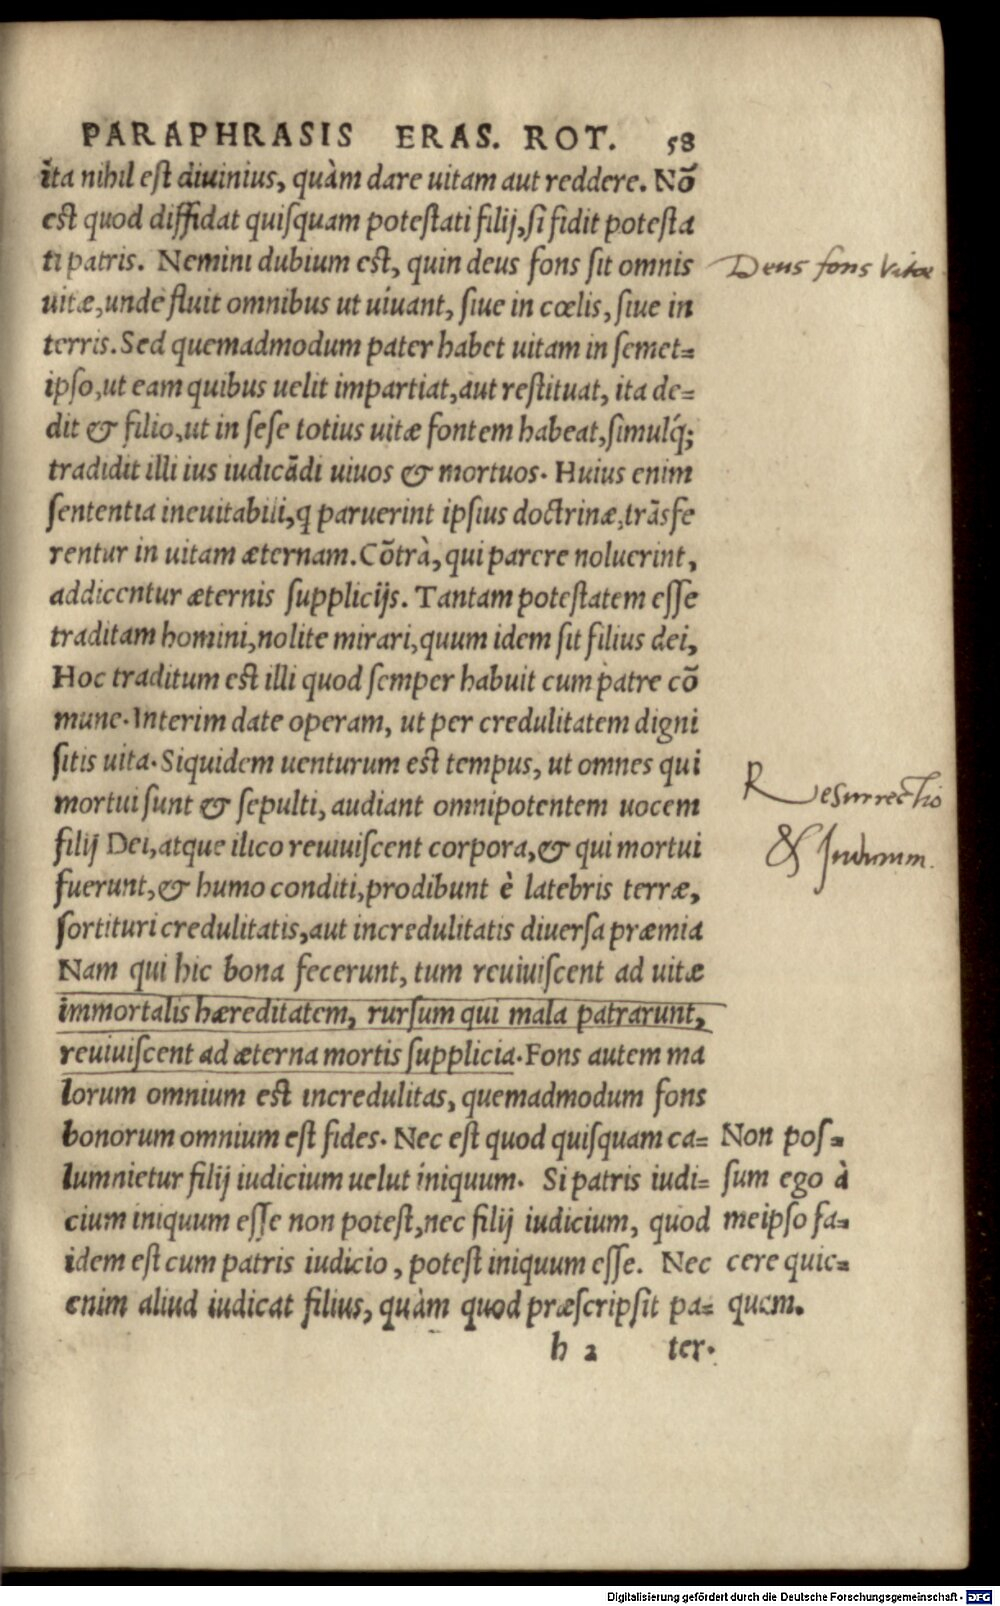 PARAPHRASIS ERAS. ROT. 58
ita nihil est diuinius, quàm dare uitam aut reddere. Nō
est quod diffidat quisquam potestati filij, si fidit potesta
ti patris. Nemini dubium est, quin deus fons sit omnis
Deus fons vitae
uitæ, unde fluit omnibus ut uiuant, siue in cœlis, siue in
terris. Sed quemadmodum pater habet uitam in semet=
ipso, ut eam quibus uelit impartiat, aut restituat, ita de=
dit & filio, ut in sese totius uitæ fontem habeat, simulq́;
tradidit illi ius iudicādi uiuos & mortuos. Huius enim
sententia ineuitabili, q paruerint ipsius doctrinæ, trāsfe
rentur in uitam æternam. Cōtrà, qui parere noluerint,
addicentur æternis supplicijs. Tantam potestatem esse
traditam homini, nolite mirari, quum idem sit filius dei,
Hoc traditum est illi quod semper habuit cum patre cō
mune. Interim date operam, ut per credulitatem digni
sitis uita. Siquidem uenturum est tempus, ut omnes qui
mortui sunt & sepulti, audiant omnipotentem uocem
Resurrectio
filij Dei, atque ilico reuiuiscent corpora, & qui mortui
&
fuerunt, & humo conditi, prodibunt è latebris terræ,
sortituri credulitatis, aut incredulitatis diuersa præmia
Nam qui hic bona fecerunt, tum reuiuiscent ad uitæ
immortalis hæreditatem, rursum qui mala patrarunt,
reuiuiscent ad æterna mortis supplicia. Fons autem ma
lorum omnium est incredulitas, quemadmodum fons
bonorum omnium est fides. Nec est quod quisquam ca=
lumnietur filij iudicium uelut iniquum. Si patris iudi=
cium iniquum esse non potest, nec filij iudicium, quod
idem est cum patris iudicio, potest iniquum esse. Nec
enim aliud iudicat filius, quàm quod præscripsit pa=
Non pos=
sum ego à
meipso fa=
cere quic=
quam.
h 2 ter.
Digitalisierung gefördert durch die Deutsche Forschungsgemeinschaft - DFG